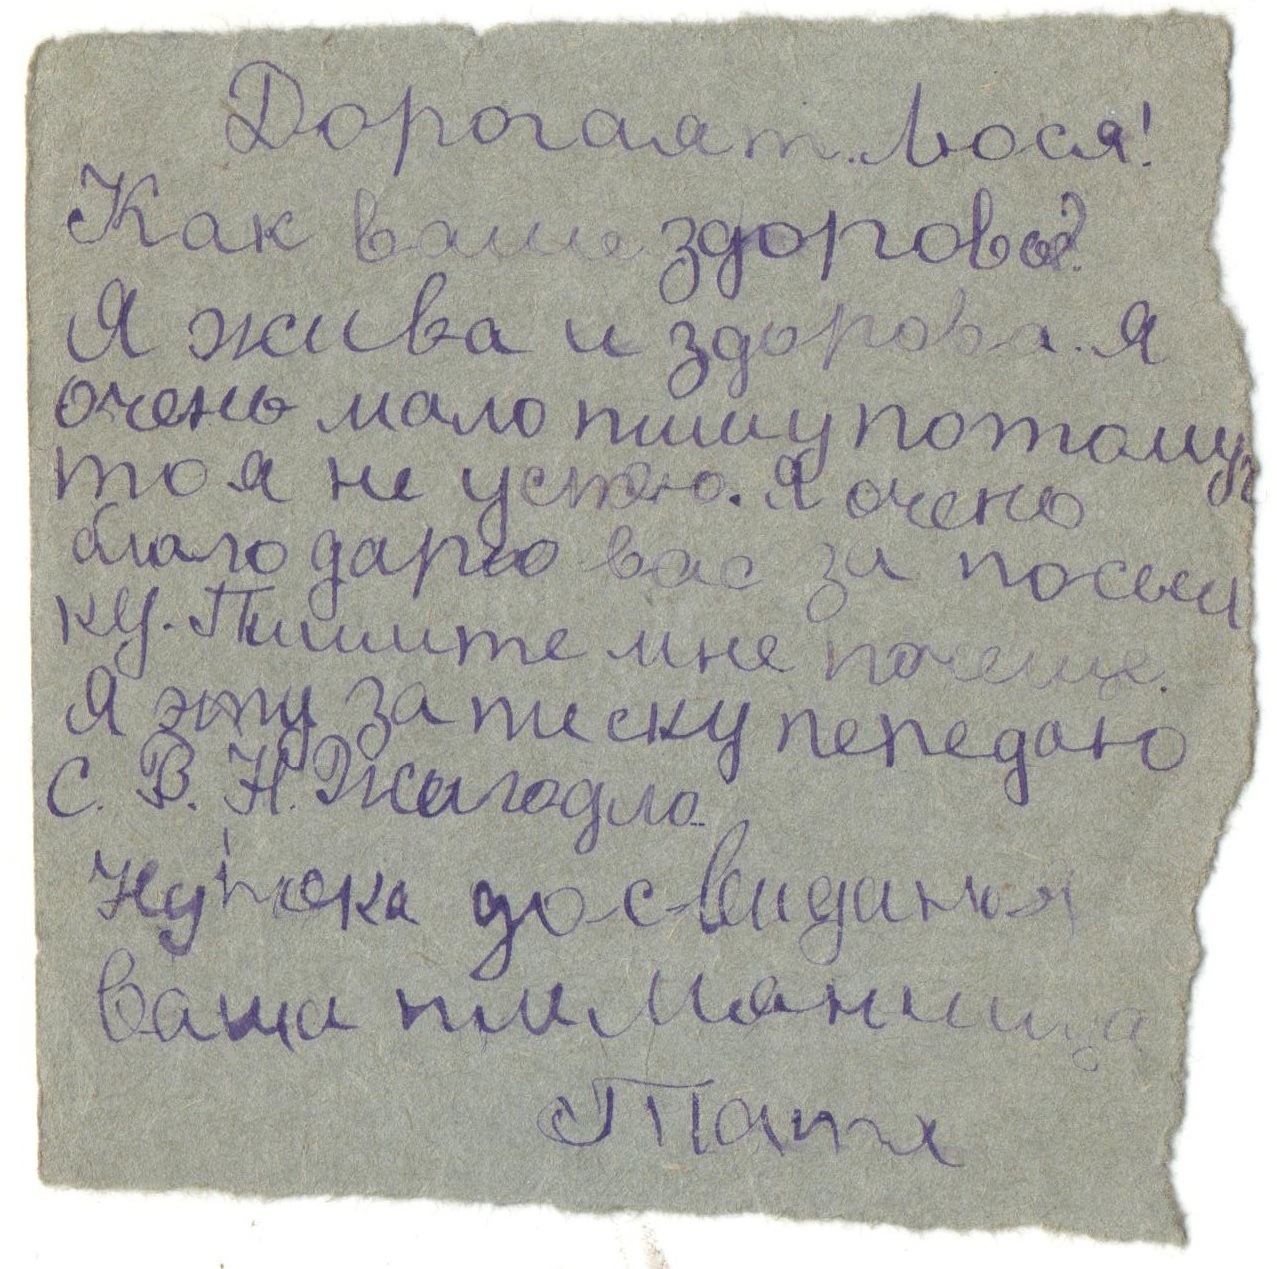 Дорогая т. Люся!
Как ваше здоровье?
Я жива и здорова. Я
очень мало пишу потомуч
то я не успею. Я очено
благодарю вас за посыл
ку. Пишите мне почаще.
Я эту записку передаю
с. В. Н.
Ну пока досвиданья
ваша плимяница
Татя